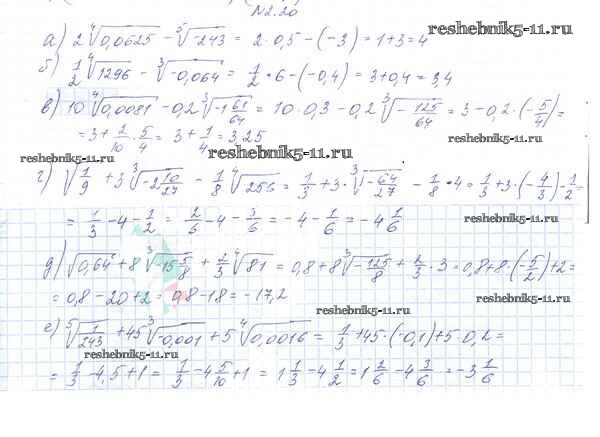 N2.20
reshebnik5-11.ru
а) 2 ∜0,0625 − ⁵√-243 = 2·0,5 − (−3) = 1+3 = 4
б) 1/2 ∜1296 − ∛-0,064 = 1/2 · 6 − (−0,4) = 3+0,4 = 3,4
в) 10 ∜0,0081 − 0,2 ∛-1 61/64 = 10·0,3 − 0,2 ∛-125/64 = 3 − 0,2·(−5/4) =
= 3 + 2/10 · 5/4 = 3 + 1/4 = 3,25
reshebnik5-11.ru
reshebnik5-11.ru
reshebnik5-11.ru
г) √1/9 + 3 ∛-2 10/27 − 1/8 ∜256 = 1/3 + 3·∛-64/27 − 1/8·4 = 1/3 + 3·(−4/3) − 1/2 =
= 1/3 − 4 − 1/2 = 2/6 − 4 − 3/6 = −4 − 1/6 = −4 1/6
reshebnik5-11.ru
д) √0,64 + 8 ∛-15 5/8 + 2/3 ∜81 = 0,8 + 8 ∛-125/8 + 2/3 · 3 = 0,8 + 8·(−5/2) + 2 =
= 0,8 − 20 + 2 = 0,8 − 18 = −17,2
reshebnik5-11.ru
е) ⁵√1/243 + 45 ∛-0,001 + 5 ∜0,0016 = 1/3 + 45·(−0,1) + 5·0,2 =
reshebnik5-11.ru
= 1/3 − 4,5 + 1 = 1/3 − 4 5/10 + 1 = 1 1/3 − 4 1/2 = 1 2/6 − 4 3/6 = −3 1/6
reshebnik5-11.ru